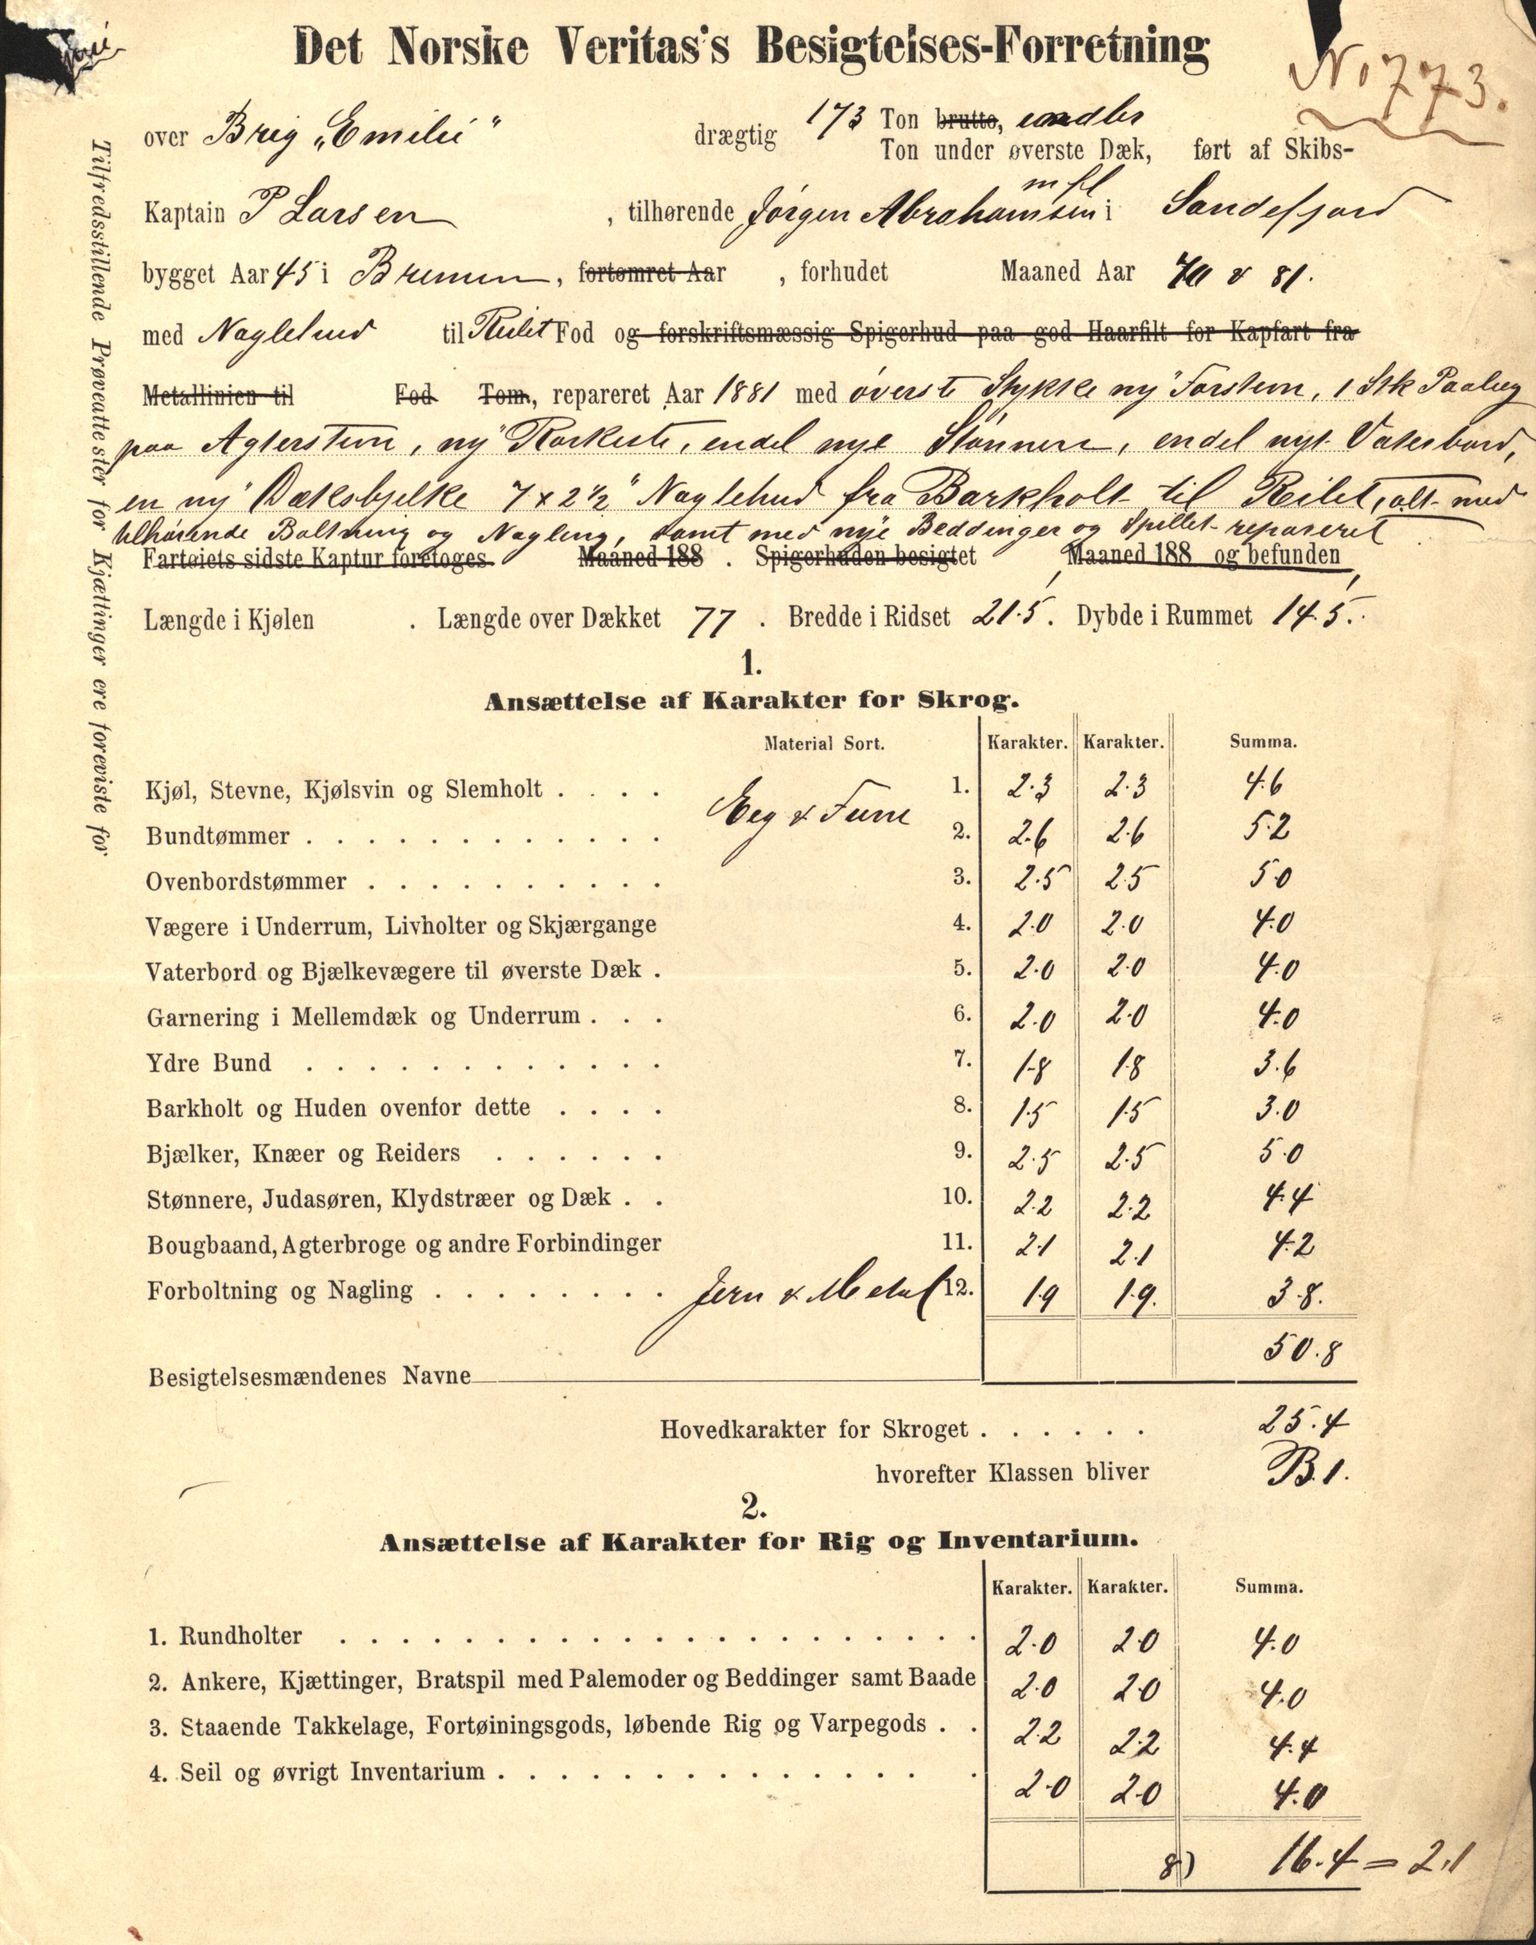 Det Norske Veritas's Besigtelses-Forretning
No 773.
over Brig „Emilie" drægtig 173 Ton brutto,
Ton under øverste Dæk, ført af Skibs-
Kaptain P Larsen, tilhørende Jørgen Abrahamsen mfl i Sandefjord
bygget Aar 45 i Bremen, fortømret Aar , forhudet Maaned Aar 70 & 81.
med Naglehud til Reilet Fod og forskriftsmæssig Spigerhud paa god Haarfilt for Kapfart fra
Metallinien til Fod Tom, repareret Aar 1881 med øverste Stykke ny Forstevn, 1 Stk Paaleg
paa Agterstevn, ny Rorkiste, endel nye Stønner, endel nyt Vaterbord,
en ny Dæksbjelke 7 x 2½" Naglehud fra Barkholt til Reilet, alt med
tilhørende Boltning og Nagling, samt med nye Beddinger og Spillet repareret
Fartøiets sidste Kaptur foretoges Maaned 188 . Spigerhuden besigtet Maaned 188 og befunden
Længde i Kjølen . Længde over Dækket 77 . Bredde i Ridset 21.5'. Dybde i Rummet 14.5'.
1.
Ansættelse af Karakter for Skrog.
Material Sort. Karakter. Karakter. Summa.
Kjøl, Stevne, Kjølsvin og Slemholt . . . . Eeg & Furu 1. 2.3 2.3 4.6
Bundtømmer . . . . . . . . . . . . . 2. 2.6 2.6 5.2
Ovenbordstømmer . . . . . . . . . . 3. 2.5 2.5 5.0
Vægere i Underrum, Livholter og Skjærgange 4. 2.0 2.0 4.0
Vaterbord og Bjælkevægere til øverste Dæk . 5. 2.0 2.0 4.0
Garnering i Mellemdæk og Underrum . . . 6. 2.0 2.0 4.0
Ydre Bund . . . . . . . . . . . . 7. 1.8 1.8 3.6
Barkholt og Huden ovenfor dette . . . . 8. 1.5 1.5 3.0
Bjælker, Knæer og Reiders . . . . . . 9. 2.5 2.5 5.0
Stønnere, Judasøren, Klydstræer og Dæk . . 10. 2.2 2.2 4.4
Bougbaand, Agterbroge og andre Forbindinger 11. 2.1 2.1 4.2
Forboltning og Nagling . . . . . . . . Jern & Metal 12. 1.9 1.9. 3.8.
50.8
Besigtelsesmændenes Navne
Hovedkarakter for Skroget . . . . . . 25.4
hvorefter Klassen bliver B.1.
2.
Ansættelse af Karakter for Rig og Inventarium.
Karakter. Karakter. Summa.
1. Rundholter . . . . . . . . . . . . . . . . . . . . . 2.0 2.0 4.0
2. Ankere, Kjættinger, Bratspil med Palemoder og Beddinger samt Baade 2.0 2.0 4.0
3. Staaende Takkelage, Fortøiningsgods, løbende Rig og Varpegods . . 2.2 2.2 4.4
4. Seil og øvrigt Inventarium . . . . . . . . . . . . . . . 2.0 2.0 4.0
8) 16.4 = 2.1
Tilfredsstillende Prøveattester for Kjættinger ere foreviste for